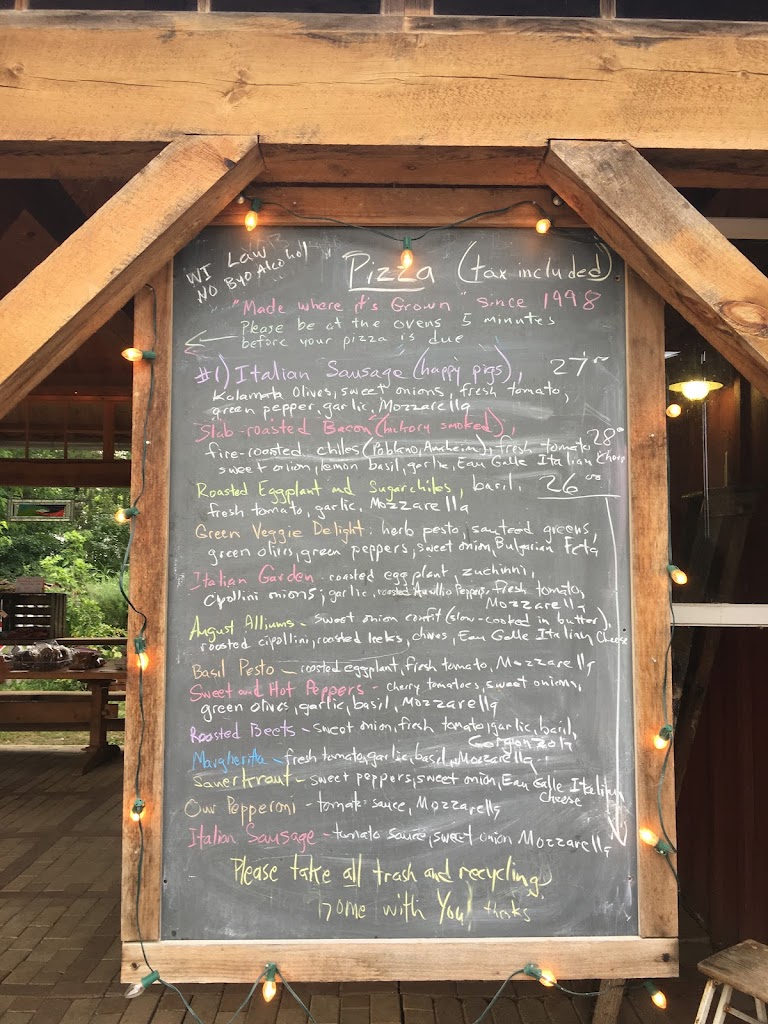 WI LAW
NO BYO Alcohol
Pizza (tax included)
"Made where it's Grown" since 1998
Please be at the ovens 5 minutes
before your pizza is due
#1) Italian Sausage (happy pigs), 27
Kalamata Olives, sweet onions, fresh tomato,
green pepper, garlic, Mozzarella
Slab-roasted Bacon (hickory smoked),
fire-roasted chiles (Poblano, Anaheim), fresh tomato 28
sweet onion, lemon basil, garlic, Eau Galle Italian Cheese
Roasted Eggplant and Sugarchiles, basil, 26
fresh tomato, garlic, Mozzarella
Green Veggie Delight: herb pesto, sauteed greens,
green olives, green peppers, sweet onion, Bulgarian Feta
Italian Garden - roasted eggplant, zuchinni,
cipollini onions, garlic, roasted Peppers, fresh tomato,
Mozzarella
August Alliums - sweet onion confit (slow-cooked in butter),
roasted cipollini, roasted leeks, chives, Eau Galle Italian Cheese
Basil Pesto - roasted eggplant, fresh tomato, Mozzarella
Sweet and Hot Peppers - cherry tomatoes, sweet onions,
green olives, garlic, basil, Mozzarella
Roasted Beets - sweet onion, fresh tomato, garlic, basil,
Margherita - fresh tomato, garlic, basil, Mozzarella
Sauerkraut - sweet peppers, sweet onion, Eau Galle Italian
Cheese
Our Pepperoni - tomato sauce, Mozzarella
Italian Sausage - tomato sauce, sweet onion Mozzarella
Please take all trash and recycling
home with You! thanks